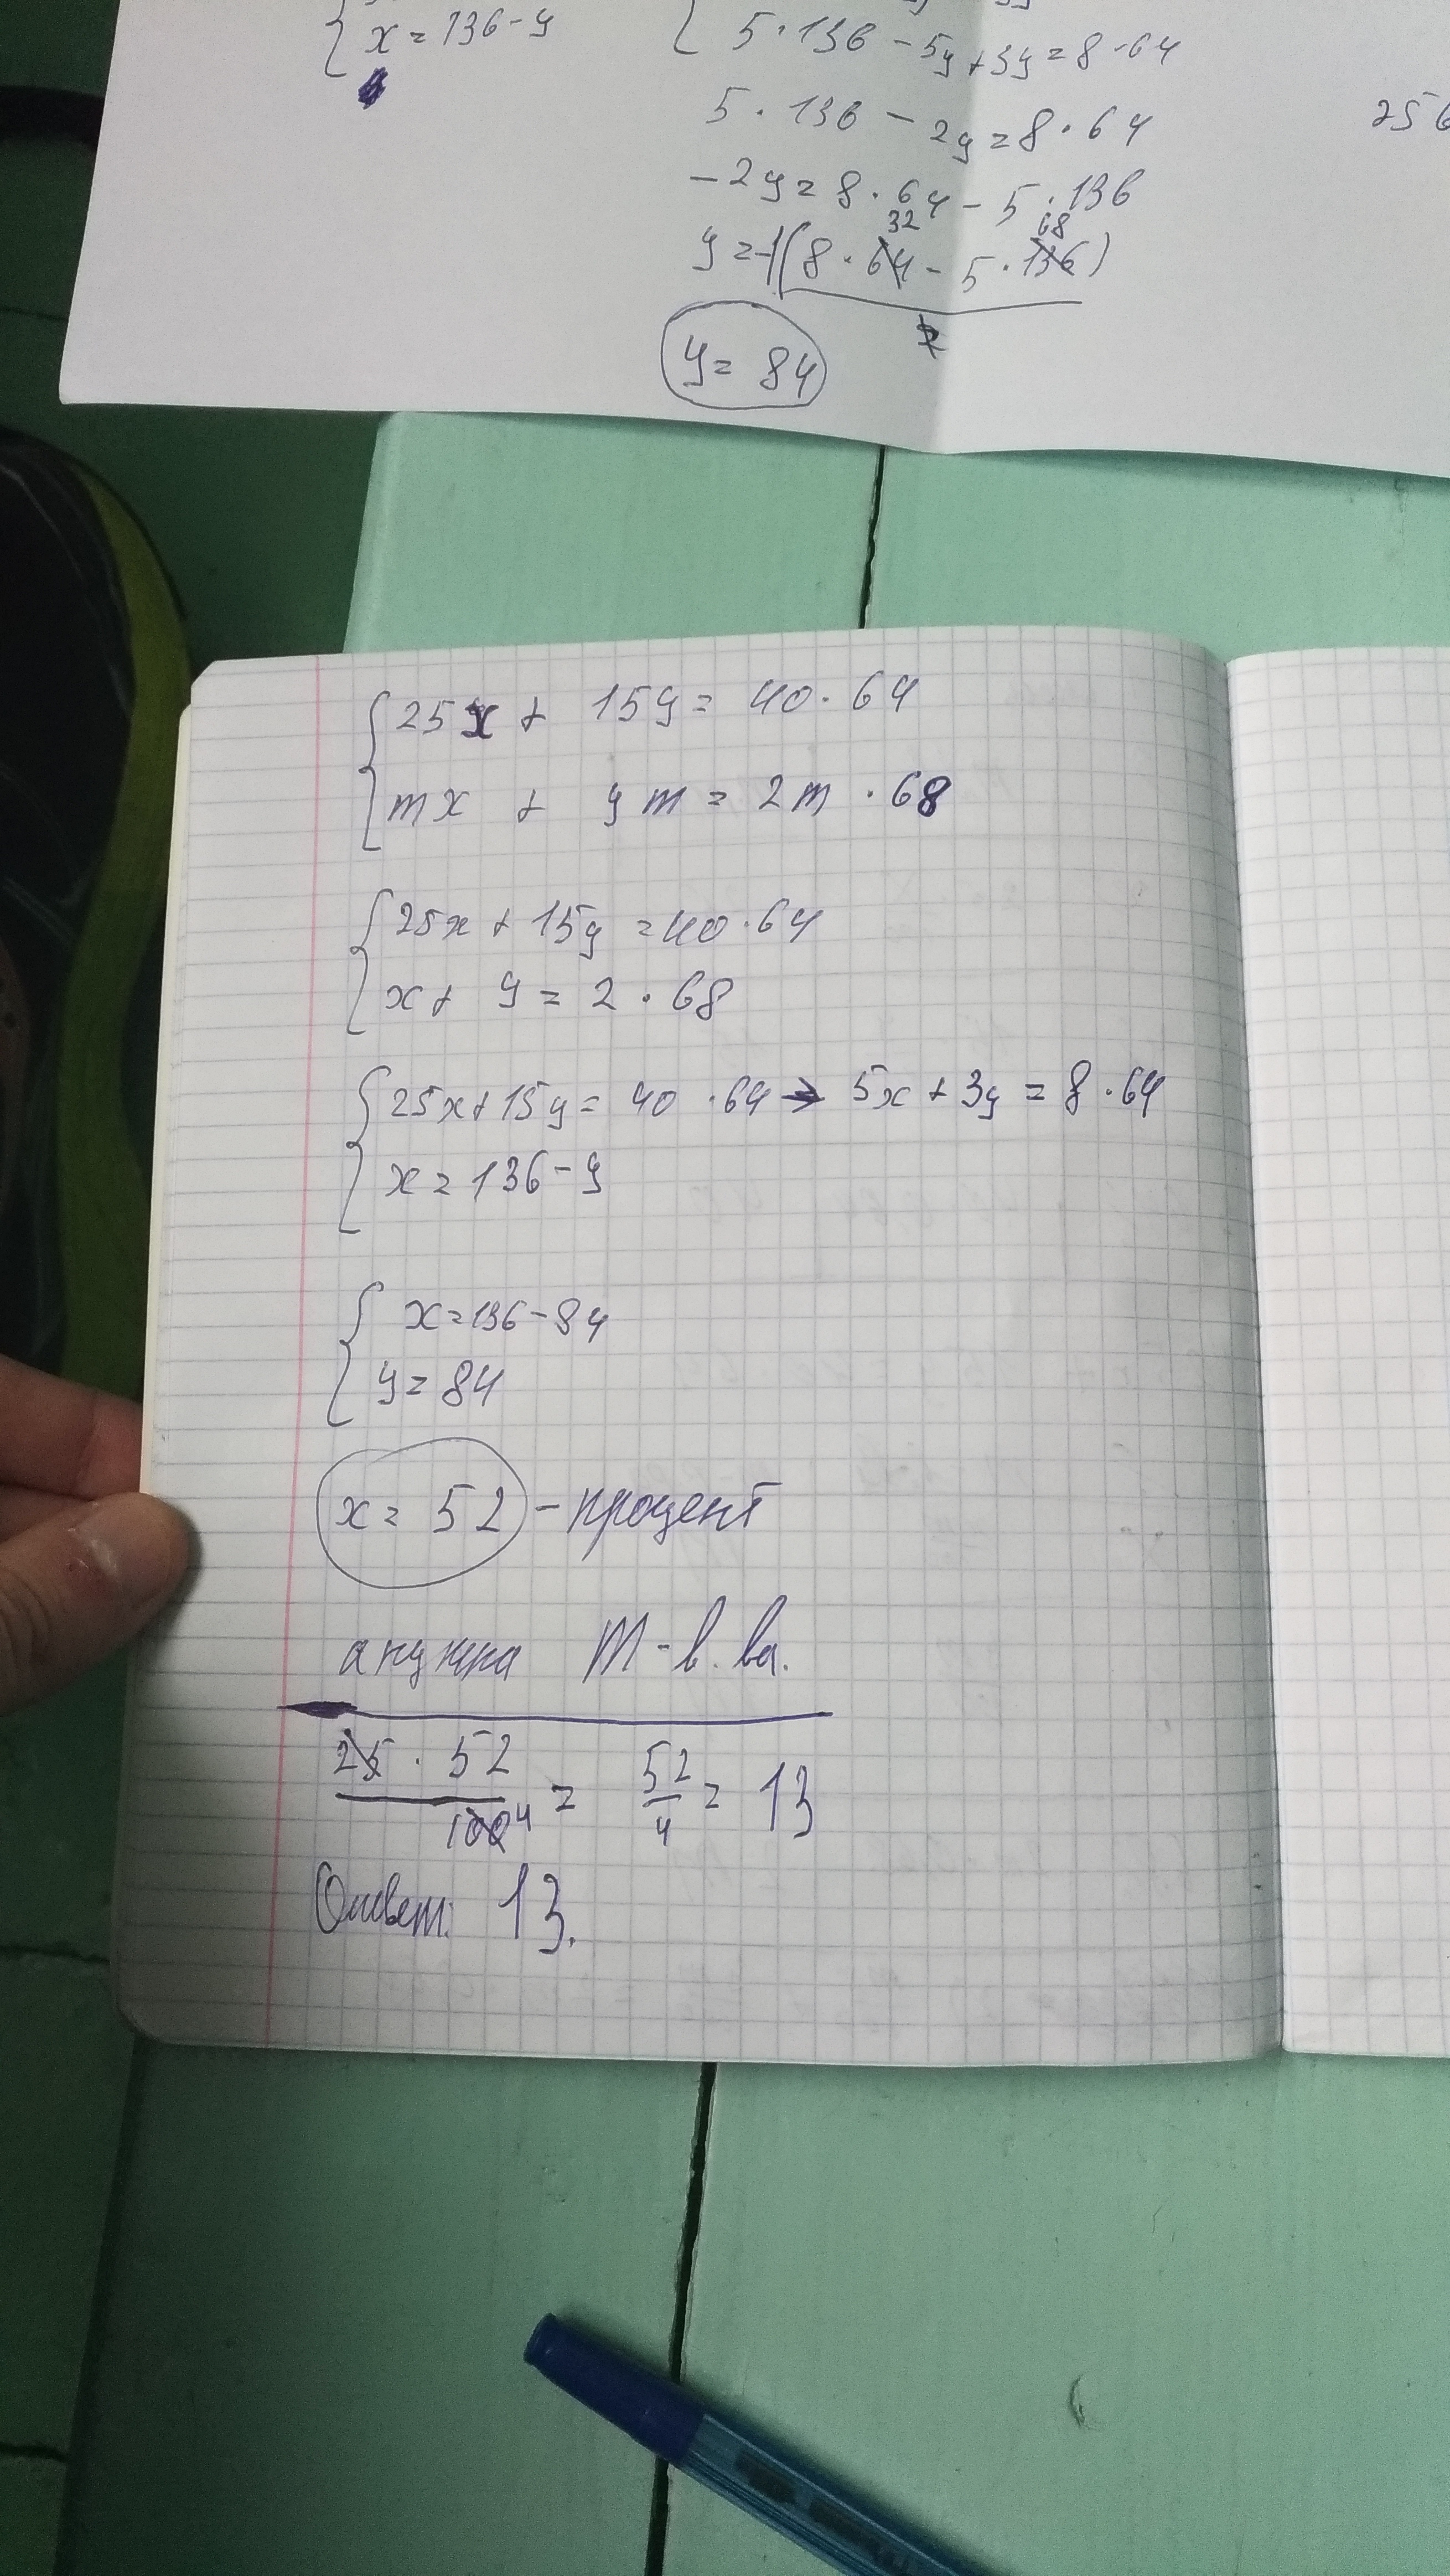 x = 136 - y
5 · 136 - 5y + 3y = 8 · 64
5 · 136 - 2y = 8 · 64
256
-2y = 8 · 64 - 5 · 136
32 68
y = -1(8 · 64 - 5 · 136)
2
y = 84
25x + 15y = 40 · 64
mx + ym = 2m · 68
25x + 15y = 40 · 64
x + y = 2 · 68
25x + 15y = 40 · 64 → 5x + 3y = 8 · 64
x = 136 - y
x = 136 - 84
y = 84
x = 52 - процент
а нужна m - в. ва.
25 · 52 / 100 4 = 52 / 4 = 13
Ответ: 13.